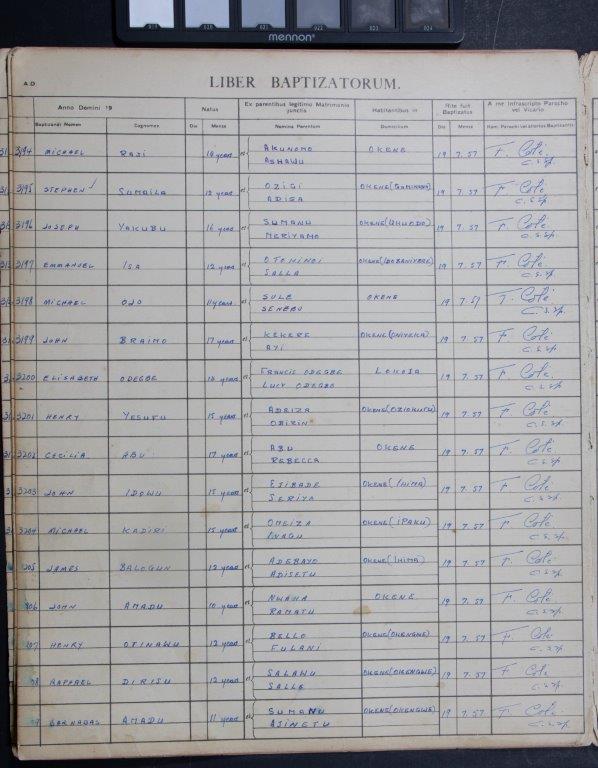 mennon
A.D
LIBER BAPTIZATORUM.
Anno Domini 19 Natus Ex parentibus legitimo Matrimonio junctis Habitantibus in Rite fuit Baptizatus A me Infrascripto Parocho vel Vicario
Baptizandi Nomen Cognomen Die Mense Nomina Parentum Domicilium Die Mense Nom. Parochi vel alterius Baptizantis
3194 MICHAEL RAJI 18 years et AKUNOMO ASHAWU OKENE 19 7.57 F. Coté C.S.Sp.
3195 STEPHEN SUMAILA 12 years et OZIGI ADISA OKENE 19 7.57 F. Coté C.S.Sp.
3196 JOSEPH YAKUBU 16 years et SUMANU MERIYAMO OKENE 19 7.57 F. Coté C.S.Sp.
3197 EMMANUEL ISA 12 years et SALLA OKENE 19 7.57 F. Coté C.S.Sp.
3198 MICHAEL OJO 11 years et SULE SENEBU OKENE 19 7.57 F. Coté C.S.Sp.
3199 JOHN BRAIMO 17 years et KEKERE AYI OKENE 19 7.57 F. Coté C.S.Sp.
3200 ELISABETH ODEGBE years et FRANCIS ODEGBE LUCY ODEGBO LOKOJA 19 7.57 F. Coté C.S.Sp.
3201 HENRY YESUFU 15 years et ADEIZA OBIRIN OKENE 19 7.57 F. Coté C.S.Sp.
3202 CECILIA ABU 17 years et ABU REBECCA OKENE 19 7.57 F. Coté C.S.Sp.
3203 JOHN IDOWU 15 years et EJIBADE SERIYA OKENE (IHIMA) 19 7.57 F. Coté C.S.Sp.
3204 MICHAEL KADIRI 15 years et OMEIZA INAGU OKENE (IPAKU) 19 7.57 F. Coté C.S.Sp.
205 JAMES BALOGUN 12 years et ADEBAYO ADISETU OKENE (IHIMA) 19 7.57 F. Coté C.S.Sp.
206 JOHN AMADU 10 years et RAMATU OKENE 19 7.57 F. Coté C.S.Sp.
207 HENRY OTINAWU 12 years et BELLO FULANI OKENE (OKENGWE) 19 7.57 F. Coté C.S.Sp.
08 RAPHAEL DIRISU 12 years et SALAWU SALLE OKENE (OKENGWE) 19 7.57 F. Coté C.S.Sp.
09 BARNABAS AMADU 11 years et SUMANU AJINETU OKENE (OKENGWE) 19 7.57 F. Coté C.S.Sp.